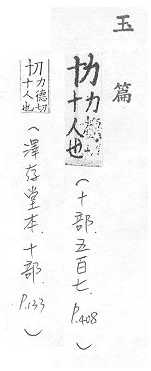 玉篇
十人也
(十部.五百七.P.408)
力德切
十人也
(澤存堂本.十部.P.133)